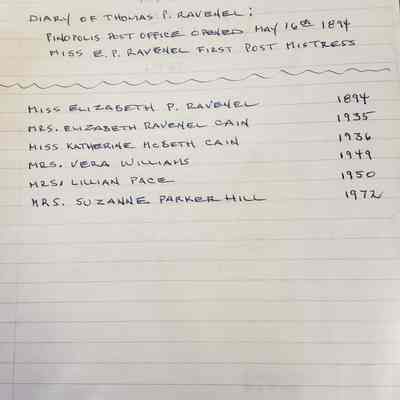 DIARY OF THOMAS P. RAVENEL:
PINOPOLIS POST OFFICE OPENED MAY 16th 1894
MISS E. P. RAVENEL FIRST POST MISTRESS
MISS ELIZABETH P. RAVENEL 1894
MRS. ELIZABETH RAVENEL CAIN 1935
MISS KATHERINE McBETH CAIN 1936
MRS. VERA WILLIAMS 1949
MRS. LILLIAN PACE 1950
MRS. SUZANNE PARKER HILL 1972